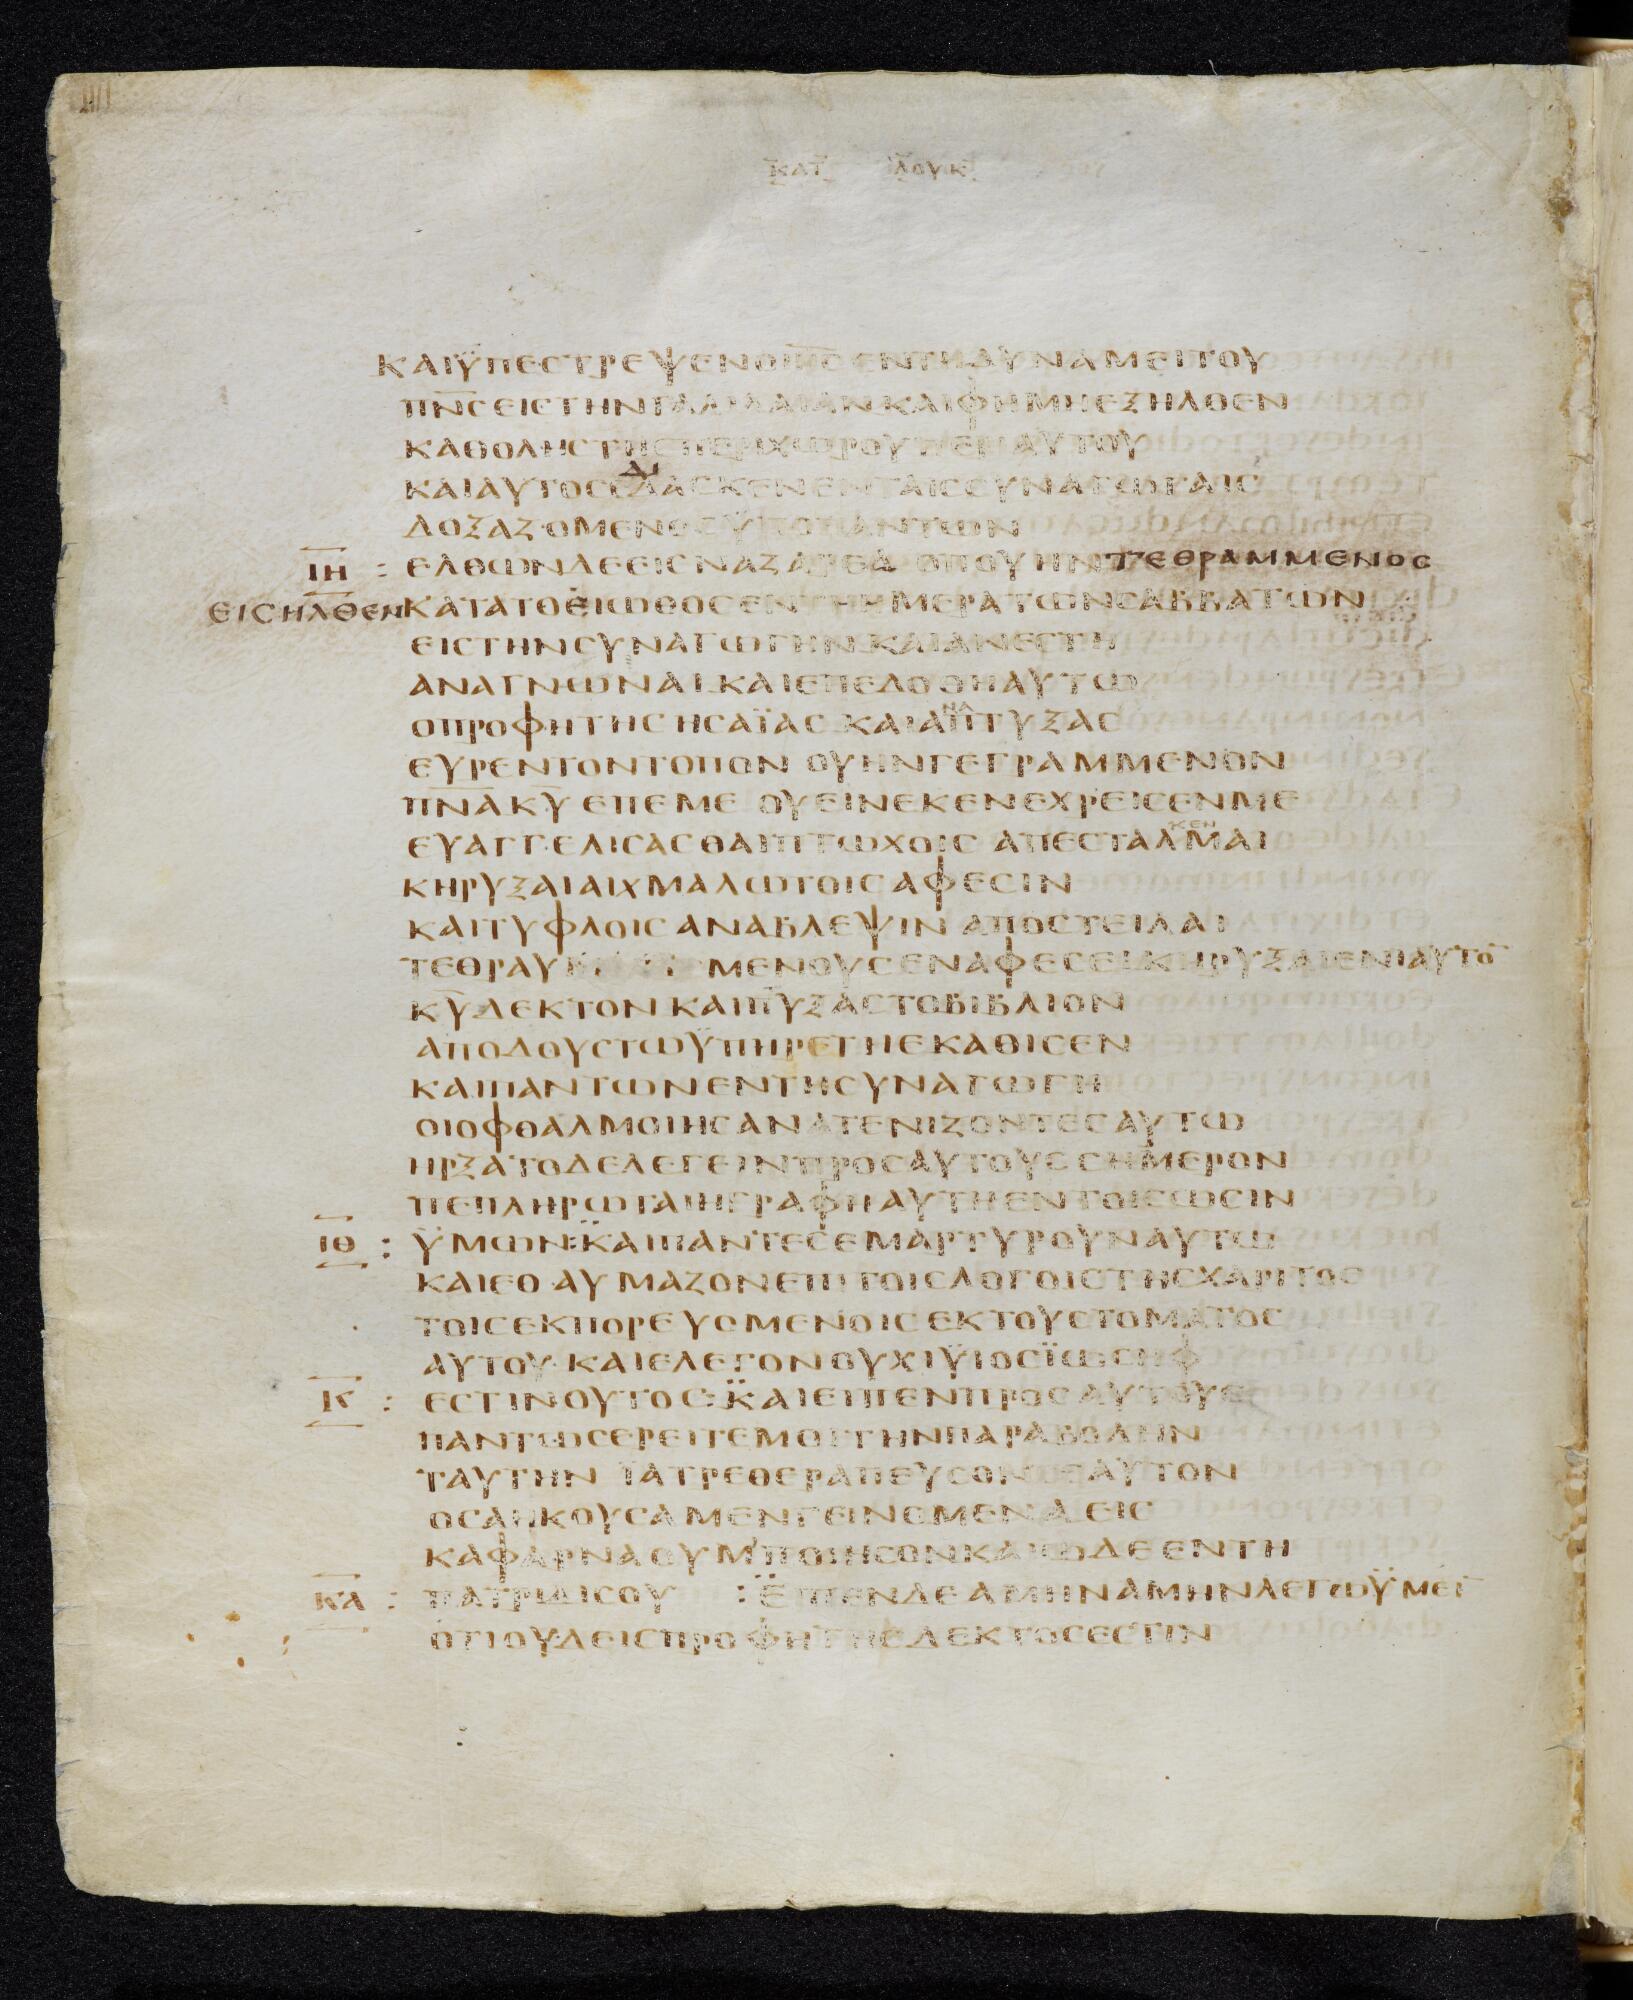 ΚΑΤ ΛΟΥΚ
ΚΑΙΫΠΕCΤΡΕΨΕΝΟΙΗC ΕΝΤΗΔΥΝΑΜΕΙΤΟΥ
ΠΝC ΕΙCΤΗΝΓΑΛΙΛΑΙΑΝΚΑΙΦΗΜΗΕΞΗΛΘΕΝ
ΚΑΘΟΛΗCΤΗCΠΕΡΙΧΩΡΟΥΠΕΡΙΑΥΤΟΥ
ΚΑΙΑΥΤΟCΕΔΙΔΑCΚΕΝΕΝΤΑΙCCΥΝΑΓΩΓΑΙC
ΔΟΞΑΖΟΜΕΝΟCΫΠΟΠΑΝΤΩΝ
ΙΗ : ΕΛΘΩΝΔΕΕΙCΝΑΖΑΡΕΔ ΟΠΟΥΗΝ ΤΕΘΡΑΜΜΕΝΟC
ΕΙCΗΛΘΕΝ ΚΑΤΑΤΟΕΙΩΘΟCΕΝΤΗΗΜΕΡΑΤΩΝCΑΒΒΑΤΩΝ
ΕΙCΤΗΝCΥΝΑΓΩΓΗΝ ΚΑΙΑΝΕCΤΗ
ΑΝΑΓΝΩΝΑΙ ΚΑΙΕΠΕΔΟΘΗΑΥΤΩ
ΟΠΡΟΦΗΤΗC ΗCΑΪΑC ΚΑΙΑΝΑΠΤΥΞΑC
ΕΥΡΕΝΤΟΝΤΟΠΟΝ ΟΥΗΝΓΕΓΡΑΜΜΕΝΟΝ
ΠΝΑ ΚΥ ΕΠΕΜΕ ΟΥΕΙΝΕΚΕΝΕΧΡΕΙCΕΝΜΕ
ΕΥΑΓΓΕΛΙCΑCΘΑΙΠΤΩΧΟΙC ΑΠΕCΤΑΛΚΕΝΜΑΙ
ΚΗΡΥΞΑΙΑΙΧΜΑΛΩΤΟΙCΑΦΕCΙΝ
ΚΑΙΤΥΦΛΟΙCΑΝΑΒΛΕΨΙΝ ΑΠΟCΤΕΙΛΑΙ
ΤΕΘΡΑΥ ΜΕΝΟΥCΕΝΑΦΕCΕΙ ΚΗΡΥΞΑΙΕΝΙΑΥΤΟ̄
ΚΥ ΔΕΚΤΟΝ ΚΑΙΠΤΥΞΑCΤΟΒΙΒΛΙΟΝ
ΑΠΟΔΟΥCΤΩΫΠΗΡΕΤΗΕΚΑΘΙCΕΝ
ΚΑΙΠΑΝΤΩΝΕΝΤΗCΥΝΑΓΩΓΗ
ΟΙΟΦΘΑΛΜΟΙΗCΑΝΑΤΕΝΙΖΟΝΤΕCΑΥΤΩ
ΗΡΞΑΤΟΔΕΛΕΓΕΙΝΠΡΟCΑΥΤΟΥC CΗΜΕΡΟΝ
ΠΕΠΛΗΡΩΤΑΙΗΓΡΑΦΗΑΥΤΗΕΝΤΟΙCΩCΙΝ
ΙΘ : ΫΜΩΝ:ΚΑΙΠΑΝΤΕCΕΜΑΡΤΥΡΟΥΝΑΥΤΩ
ΚΑΙΕΘΑΥΜΑΖΟΝΕΠΙΤΟΙCΛΟΓΟΙCΤΗCΧΑΡΙΤΟC
ΤΟΙCΕΚΠΟΡΕΥΟΜΕΝΟΙC ΕΚΤΟΥCΤΟΜΑΤΟC
ΑΥΤΟΥ·ΚΑΙΕΛΕΓΟΝ ΟΥΧΙΫΙΟCΪΩCΗΦ
Κ : ΕCΤΙΝΟΥΤΟC:ΚΑΙΕΙΠΕΝΠΡΟCΑΥΤΟΥC
ΠΑΝΤΩCΕΡΕΙΤΕΜΟΙΤΗΝΠΑΡΑΒΟΛΗΝ
ΤΑΥΤΗΝ ΪΑΤΡΕΘΕΡΑΠΕΥCΟΝCΕΑΥΤΟΝ
ΟCΑΗΚΟΥCΑΜΕΝΓΕΙΝΟΜΕΝΑ ΕΙC
ΚΑΦΑΡΝΑΟΥΜ ΠΟΙΗCΟΝΚΑΙΩΔΕΕΝΤΗ
ΚΑ : ΠΑΤΡΙΔΙCΟΥ :ΕΙΠΕΝΔΕΑΜΗΝΑΜΗΝΛΕΓΩΫΜΕῙ
ΟΤΙΟΥΔΕΙCΠΡΟΦΗΤΗCΔΕΚΤΟCΕCΤΙΝ